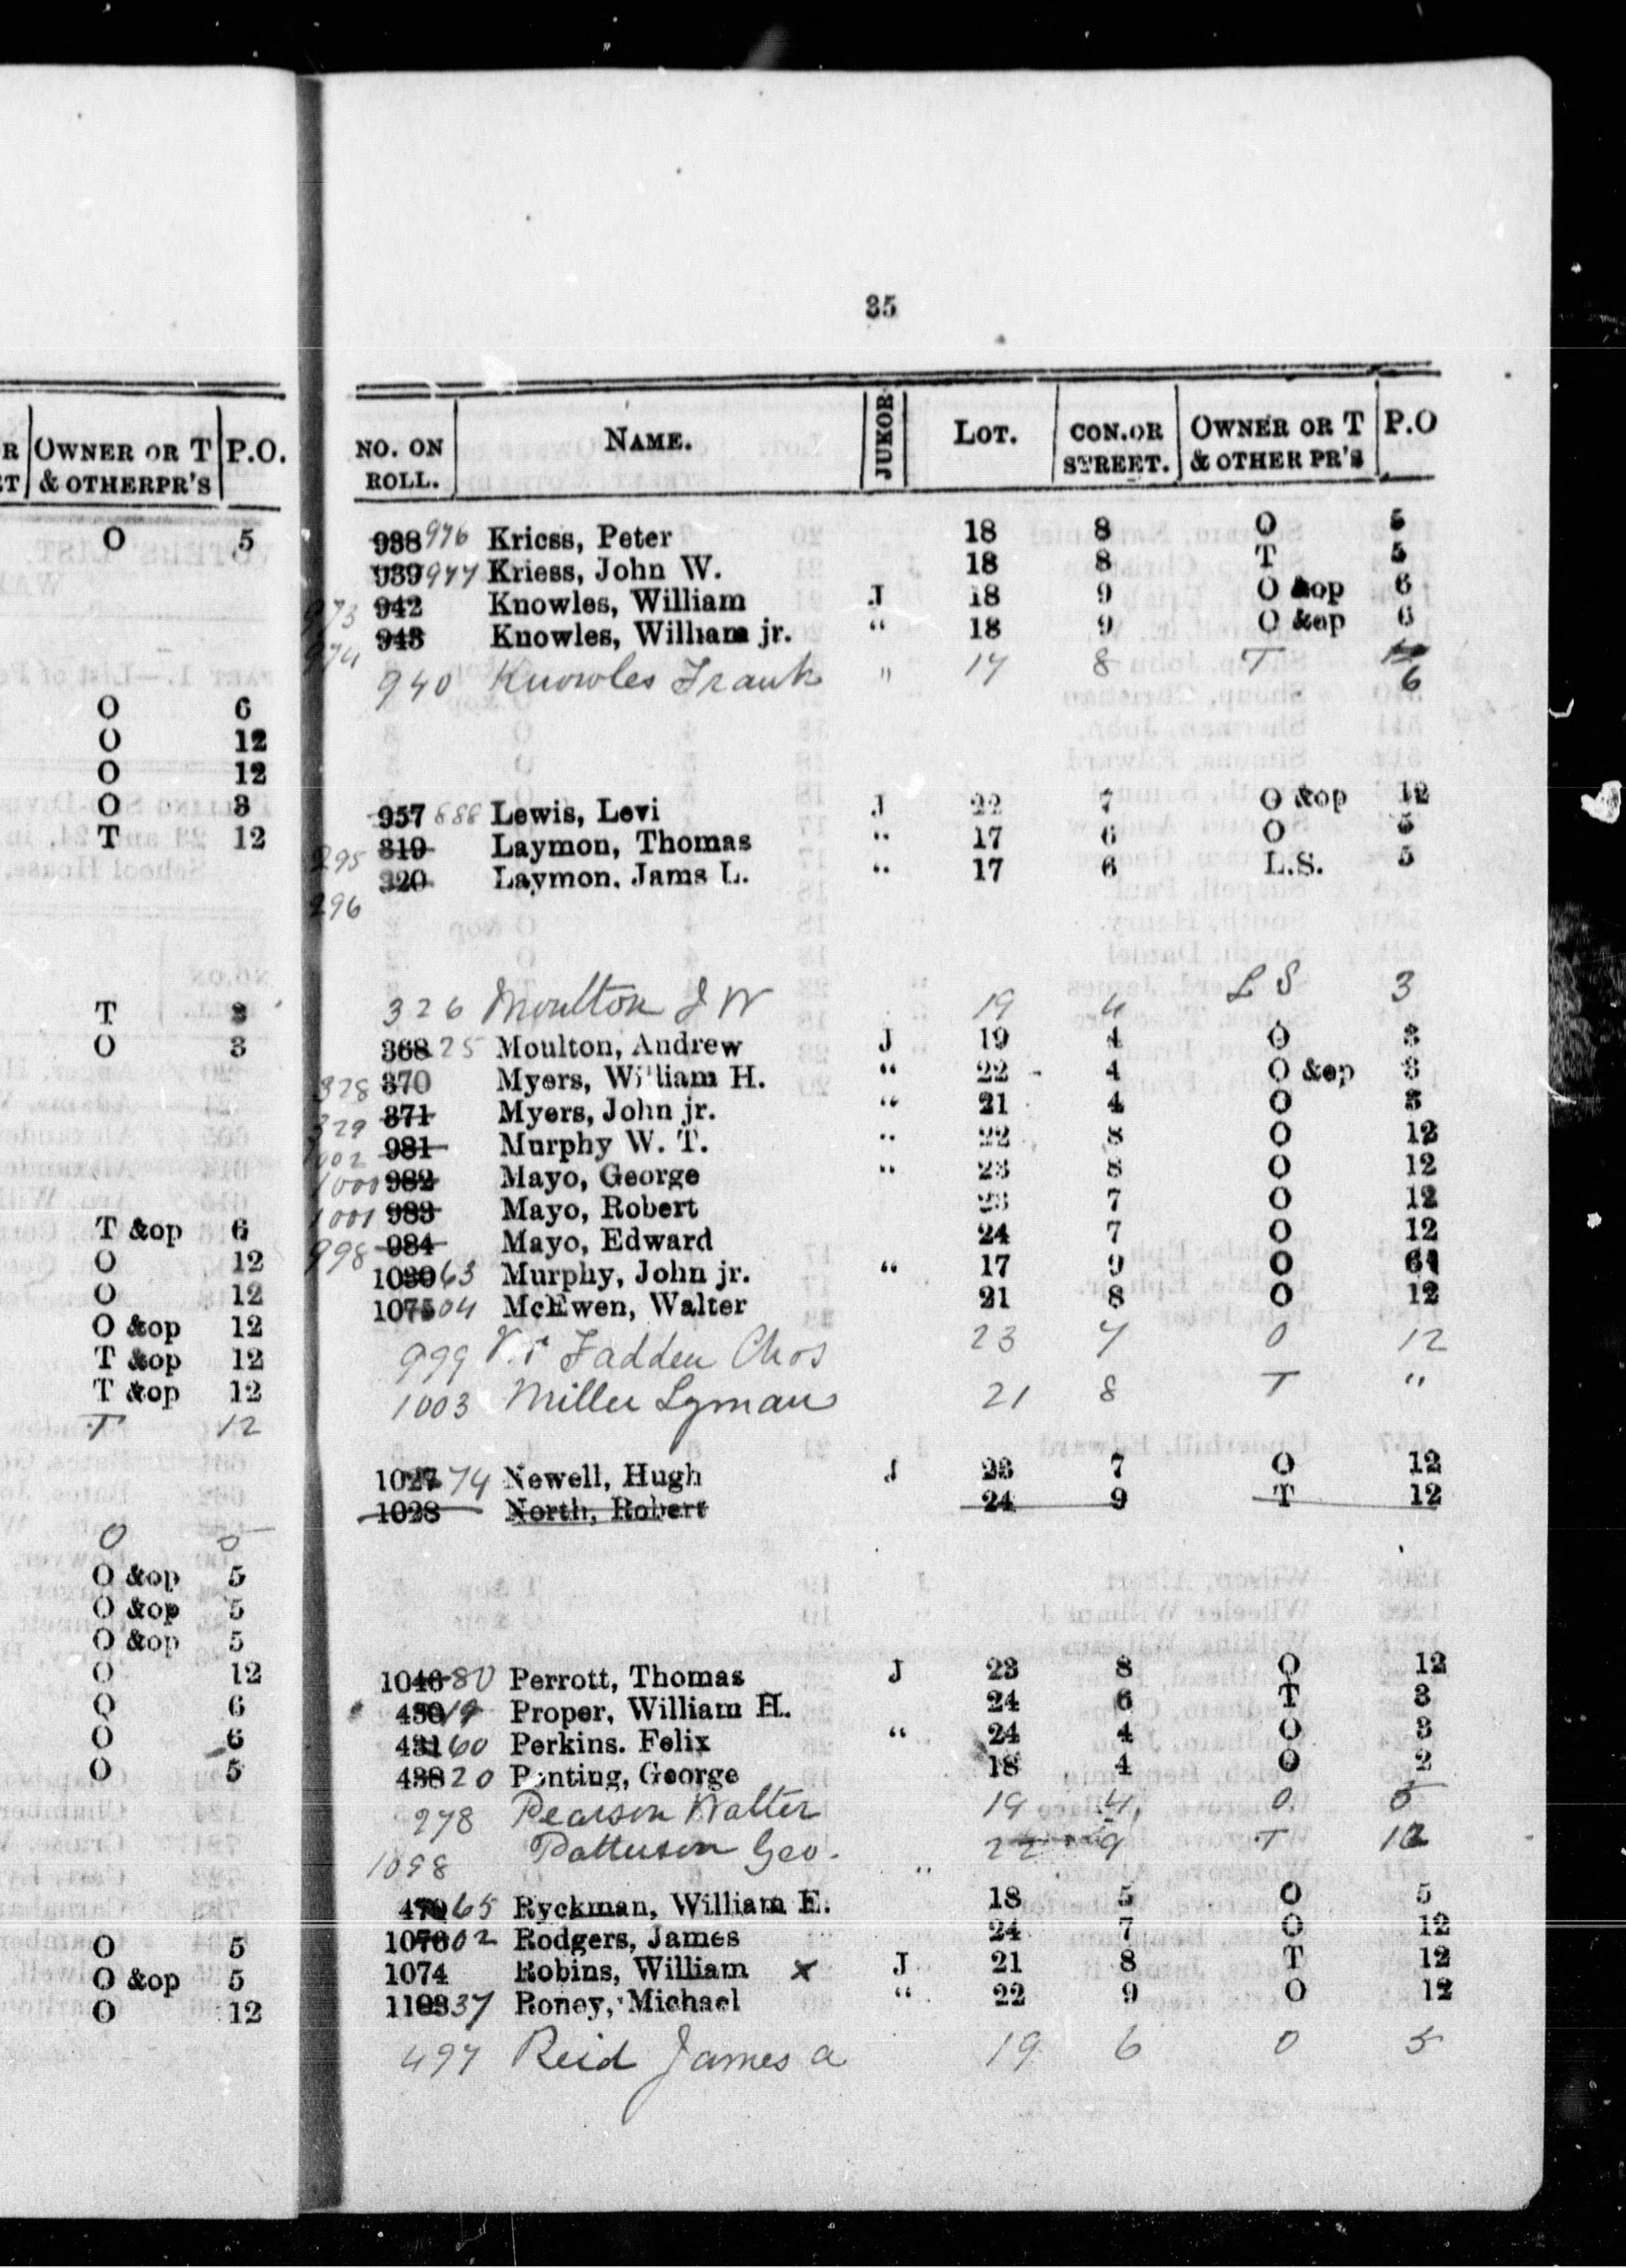 R OWNER OR T P.O.
ET & OTHERPR'S
O 5
O 6
O 12
O 12
O 3
T 12
T 3
O 3
T &op 6
O 12
O 12
O &op 12
T &op 12
T &op 12
T 12
O 5
O &op 5
O &op 5
O &op 5
O 12
O 6
O 6
O 5
O 5
O &op 5
O 12
35
NO. ON NAME. JUROR LOT. CON.OR OWNER OR T P.O
ROLL. STREET. & OTHER PR'S
938 976 Kriess, Peter 18 8 O 5
939 977 Kriess, John W. 18 8 T 5
973 942 Knowles, William J 18 9 O &op 6
974 943 Knowles, William jr. “ 18 9 O &op 6
940 Knowles Frank " 17 8 T 6
957 888 Lewis, Levi J 22 7 O &op 12
295 319 Laymon, Thomas “ 17 6 O 5
296 320 Laymon, Jams L. “ 17 6 L.S. 5
326 Moulton J W 19 4 L S 3
368 25 Moulton, Andrew J 19 4 O 3
328 370 Myers, William H. “ 22 4 O &op 3
329 371 Myers, John jr. “ 21 4 O 3
1002 981 Murphy W. T. “ 22 8 O 12
1000 982 Mayo, George “ 23 8 O 12
1001 983 Mayo, Robert 23 7 O 12
998 984 Mayo, Edward 24 7 O 12
1030 63 Murphy, John jr. “ 17 9 O 6
1075 04 McEwen, Walter 21 8 O 12
999 Fadden Chos 23 7 O 12
1003 Miller Lyman 21 8 T "
1027 74 Newell, Hugh J 23 7 O 12
1028 North, Robert 24 9 T 12
1046 80 Perrott, Thomas J 23 8 O 12
430 19 Proper, William H. 24 6 T 3
431 60 Perkins. Felix “ 24 4 O 3
438 20 Ponting, George 18 4 O 2
978 Pearson Walter 19 4 O 5
1098 Patterson Geo. " 22 9 T 12
470 65 Ryckman, William E. 18 5 O 5
1076 02 Rodgers, James 24 7 O 12
1074 Robins, William x J 21 8 T 12
1108 37 Roney, Michael “ 22 9 O 12
497 Reid James a 19 6 O 5